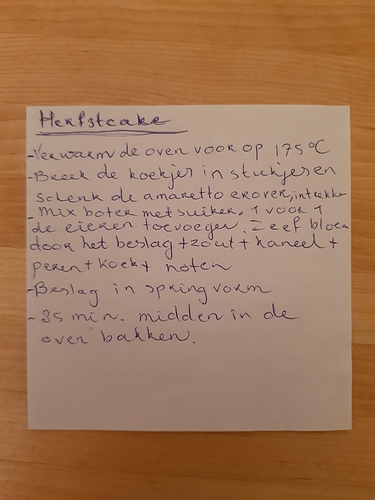 Herfstcake
-Verwarm de oven voor op 175°C
-Breek de koekjes in stukjes en
schenk de amaretto erover, intrekken
-Mix boter met suiker, 1 voor 1
de eieren toevoegen. Zeef bloem
door het beslag + zout + kaneel +
peren + koek + noten
-Beslag in springvorm
-35 min. midden in de
oven bakken.